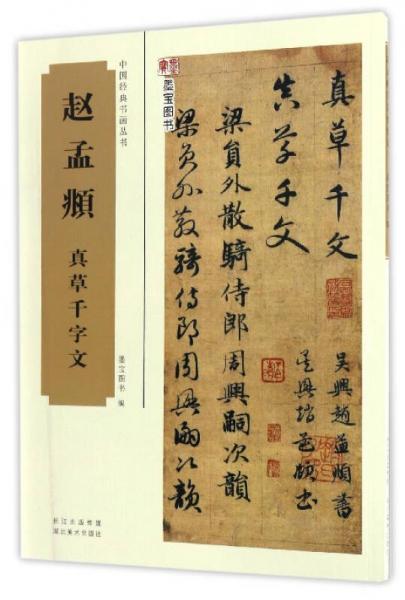 中国经典书画丛书
赵孟頫
真草千字文
墨宝图书 编
长江出版传媒
湖北美术出版社
墨宝图书
真草千文
真草千文
梁員外散騎侍郎周興嗣次韻
梁員外散騎侍郎周興嗣次韻
吴興趙孟頫書
吴興趙孟頫書